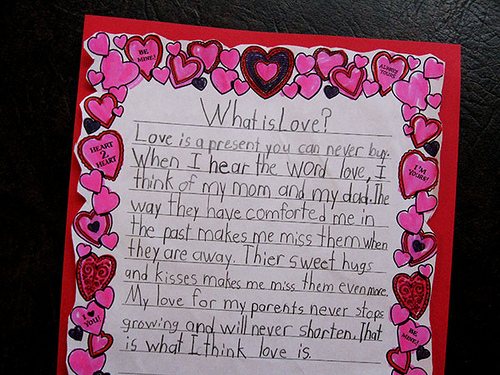 BE MINE!
ALWAYS YOURS!
What is Love?
Love is a present you can never buy.
When I hear the word love, I
think of my mom and my dad. The
way they have comforted me in
the past makes me miss them when
they are away. Thier sweet hugs
and kisses makes me miss them even more.
My love for my parents never stops
growing and will never shorten. That
is what I think love is.
HEART 2 HEART
I'M YOURS!
I ♥ YOU!
BE MINE!